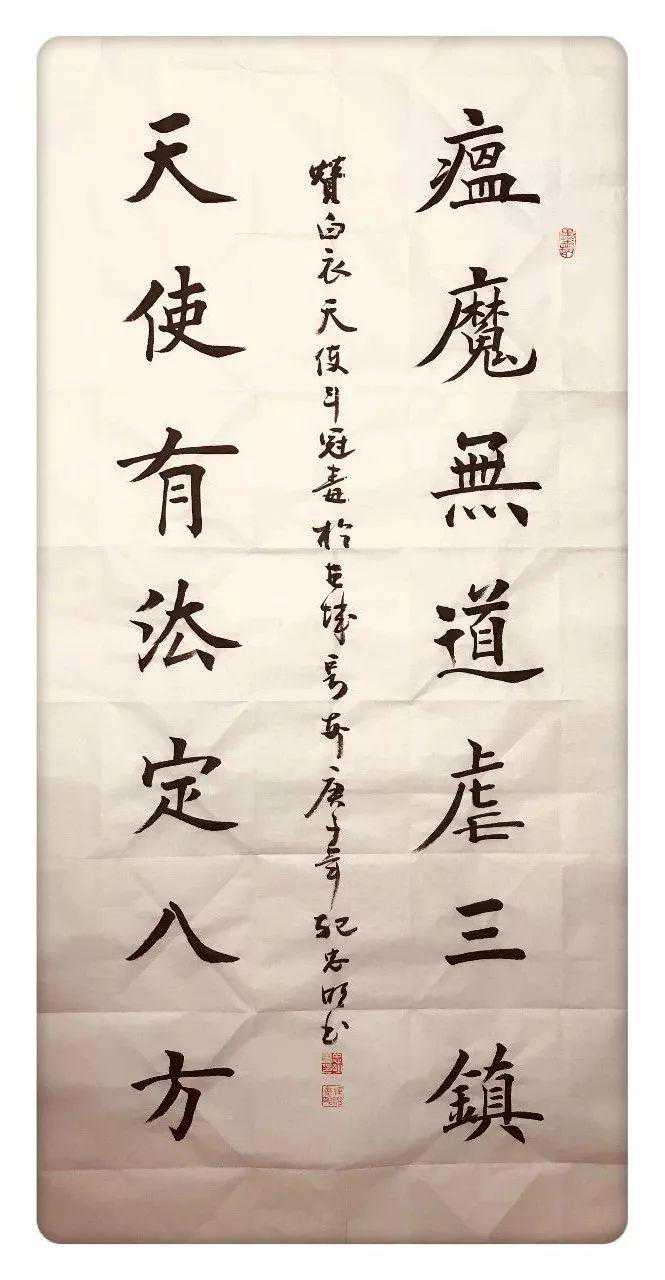 瘟魔無道虐三鎮
贊白衣天使斗冠毒於城庚子年紀忠明书
天使有法定八方